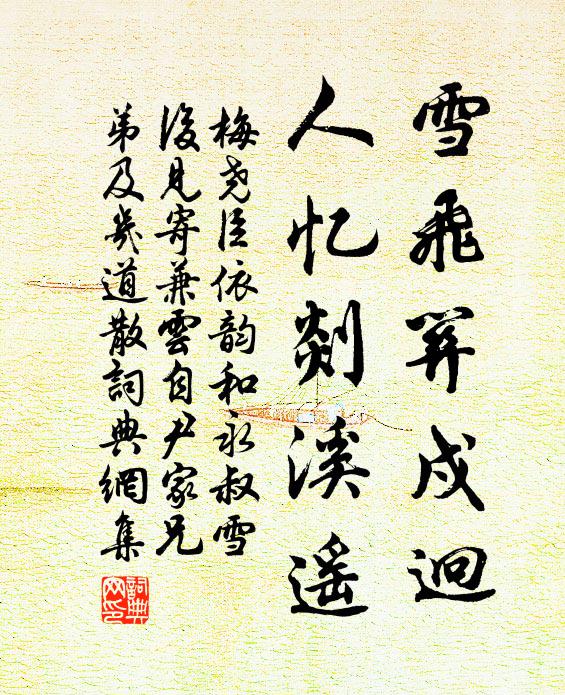 雪飛笄戍迥
人忆剡溪遥
梅尧臣依韵和永叔雪
後見寄兼雲自尹家兄
弟及幾道散詞典網集
詞典网印